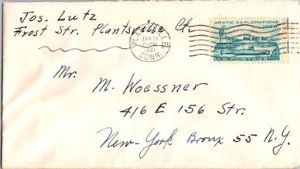 Jos. Lutz
Frost Str. Plantsville Ct.
JAN
CONN
ARCTIC EXPLORATIONS
1909
1959
Mr. M. Woessner
416 E 156 Str.
New-York Bronx 55 N.Y.